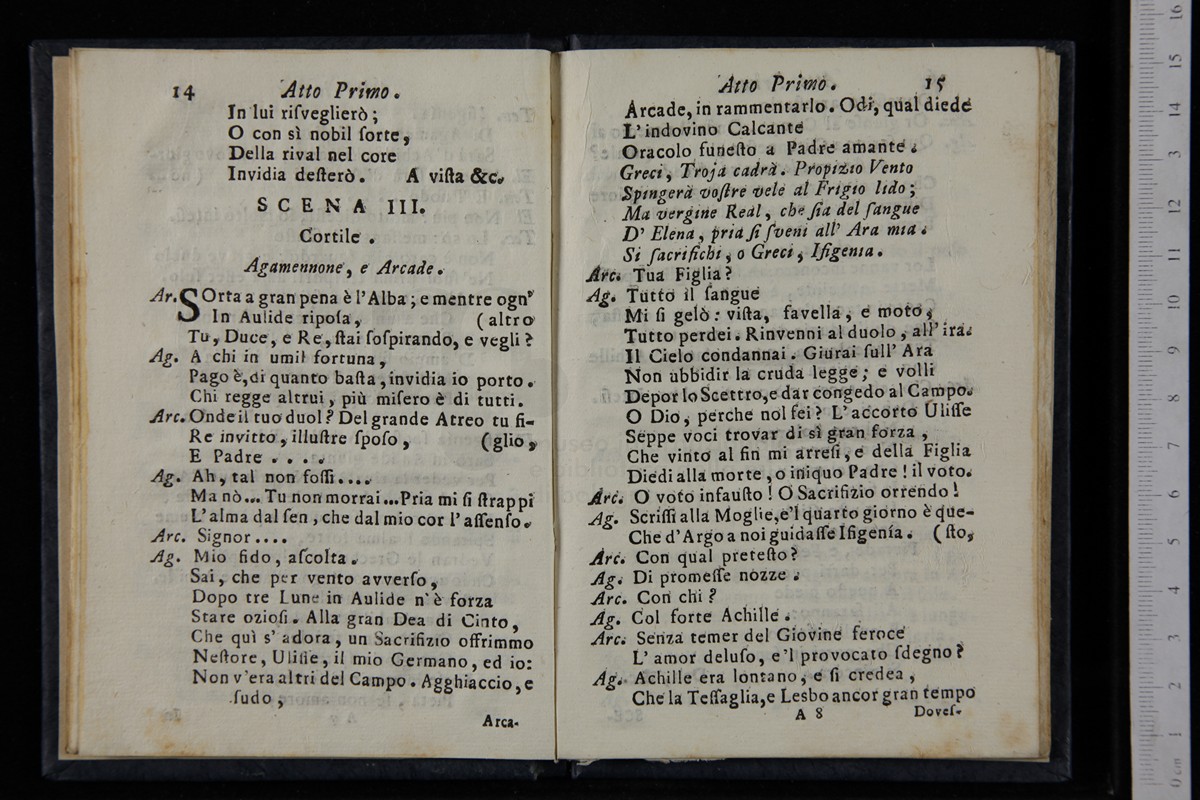 14 Atto Primo.
In lui riſveglierò;
O con sì nobil ſorte,
Della rival nel core
Invidia deſterò. A viſta &c.
SCENA III.
Cortile.
Agamennone, e Arcade.
Ar. SOrta a gran pena è l'Alba; e mentre ogn'
In Aulide ripoſa, (altro
Tu, Duce, e Re, ſtai ſoſpirando, e vegli?
Ag. A chi in umil fortuna,
Pago è, di quanto baſta, invidia io porto.
Chi regge altrui, più miſero è di tutti.
Arc. Onde il tuo duol? Del grande Atreo tu fi-
Re invitto, illuſtre ſpoſo, (glio,
E Padre . . . .
Ag. Ah, tal non foſſi....
Ma nò... Tu non morrai... Pria mi ſi ſtrappi
L'alma dal ſen, che dal mio cor l'aſſenſo.
Arc. Signor....
Ag. Mio fido, aſcolta.
Sai, che per vento avverſo,
Dopo tre Lune in Aulide n'è forza
Stare ozioſi. Alla gran Dea di Cinto,
Che quì s'adora, un Sacrifizio offrimmo
Neſtore, Uliſſe, il mio Germano, ed io:
Non v'era altri del Campo. Agghiaccio, e
ſudo,
Arca-
Atto Primo. 15
Arcade, in rammentarlo. Odi, qual diede
L'indovino Calcante
Oracolo funeſto a Padre amante.
Greci, Troja cadrà. Propizio Vento
Spingerà voſtre vele al Frigio lido;
Ma vergine Real, che ſia del ſangue
D'Elena, pria ſi ſveni all'Ara mia.
Si ſacrifichi, o Greci, Ifigenia.
Arc. Tua Figlia?
Ag. Tutto il ſangue
Mi ſi gelò: viſta, favella, e moto,
Tutto perdei. Rinvenni al duolo, all'ira.
Il Cielo condannai. Giurai ſull'Ara
Non ubbidir la cruda legge; e volli
Depor lo Scettro, e dar congedo al Campo.
O Dio, perche nol fei? L'accorto Uliſſe
Seppe voci trovar di sì gran forza,
Che vinto al fin mi arreſi, e della Figlia
Diedi alla morte, o iniquo Padre! il voto.
Arc. O voto infauſto! O Sacrifizio orrendo!
Ag. Scriſſi alla Moglie, e'l quarto giorno è que-
Che d'Argo a noi guidaſſe Ifigenía. (ſto,
Arc. Con qual preteſto?
Ag. Di promeſſe nozze.
Arc. Con chi?
Ag. Col forte Achille.
Arc. Senza temer del Giovine feroce
L'amor deluſo, e'l provocato ſdegno?
Ag. Achille era lontano, e ſi credea,
Che la Teſſaglia, e Lesbo ancor gran tempo
A 8 Doveſ-